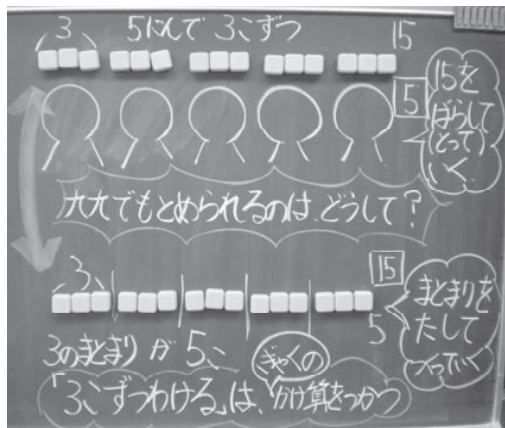 3 5にんで 3こずつ 15
5
15を
ばらして
(とって)
いく.
九九でもとめられるのは、どうして?
3
15
5
まとまりを
たして
つっていく
3のまとまり が 5こ
ぎゃくの
「3こずつわける」は、かけ算をつかつ